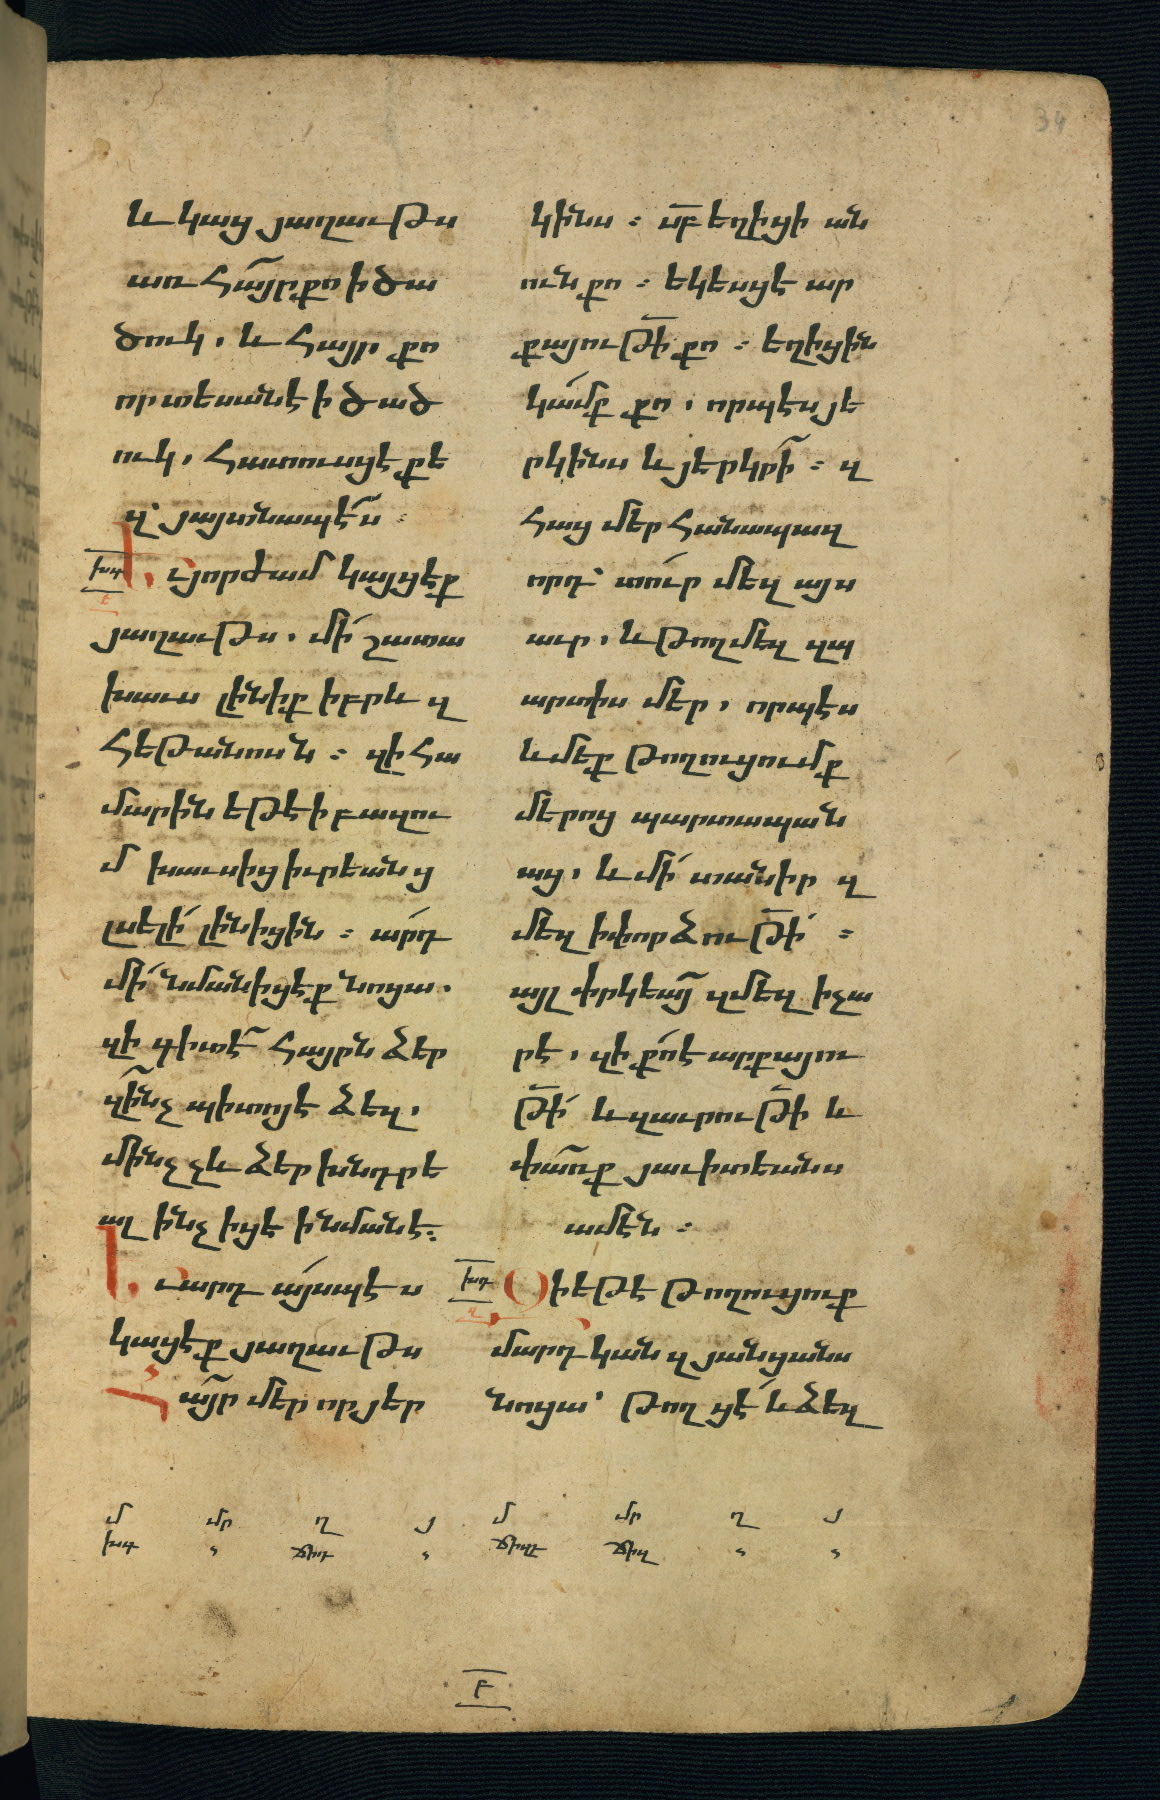 34
և կաց յաղաւթս
առ հա՜յր քո ի ծա
ծուկ, և հայր քո
որ տեսանէ ի ծած
ուկ, հատուսցէ քե
զ՝ յայտնապէ՜ս ։
խգ
Եւ յորժամ կայցէք
յաղաւթս, մի՛ շատա
խաւս լինիք իբրև զ
հեթանոսն ։ զի հա
մարին եթէ ի բազու
մ խաւսից իւրեանց
լսելի՛ լինիցին ։ ա՛րդ
մի՛ նմանիցէք նոցա.
զի գիտէ՜ հայրն ձեր
զի՜նչ պիտոյ է ձեզ,
մինչ չև ձեր խնդրե
ալ ինչ իցէ ի նմանէ։
Եւ արդ ա՛յսպէս
կացէք յաղաւթս
Հա՜յր մեր որ յեր
կինս ։ սբ եղիցի ան
ուն քո ։ եկեսցէ ար
քայութի քո ։ եղիցին
կա՛մք քո, որպէս յե
րկինս և յերկրի՜ ։ զ
հաց մեր հանապազ
որդ՝ տո՛ւր մեզ այս
աւր, և թող մեզ զպ
արտիս մեր, որպէս
և մեք թողուցումք
մերոց պարտապան
աց, և մի՛ տանիր զ
մեզ ի փորձութի՛ ։
այլ փրկեա՜ զմեզ ի չա
րէ, զի քո՛ է արքայու
թի՛ և զաւրութի և
փա՜ռք յաւիտեանս
ամէն ։
խդ
Զի եթէ թողուցուք
մարդկան զյանցանս
նոցա՝ թողցէ՛ և ձեզ
մ մր ղ յ մ մր ղ յ
խգ ՟ ճիդ ՟ ճիզ ՟ ՟
Բ